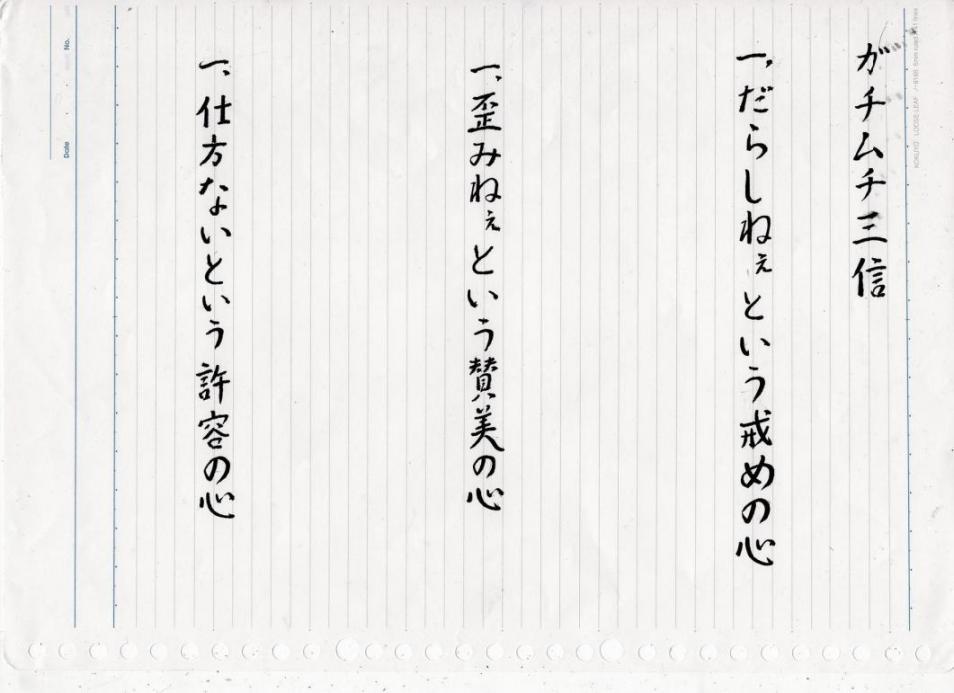 ガチムチ三信
一、だらしねぇという戒めの心
一、歪みねぇという賛美の心
一、仕方ないという許容の心
No.
Date